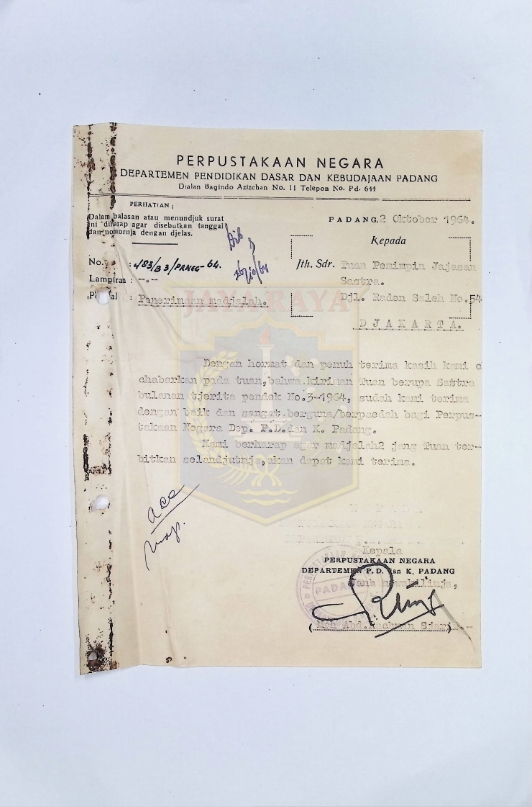 PERPUSTAKAAN NEGARA
DEPARTEMEN PENDIDIKAN DASAR DAN KEBUDAJAAN PADANG
Djalan Bagindo Azizchan No. 11 Telepon No. Pd. 644
PERHATIAN:
Dalam balasan atau menundjuk surat
ini diharap agar disebutkan tanggal
dan nomornja dengan djelas.
PADANG, 2 Oktober 1964.
Kepada
No. : 483/B3/PANEG-64.
Lampiran : -.-
Jth. Sdr. Tuan Pemimpin Jajasan
Sastra.
Djl. Raden Saleh No.54
DJAKARTA.
Penerimaan madjalah.
JAYA RAYA
Dengan hormat dan penuh terima kasih kami
chabarkan pada tuan, bahwa kiriman Tuan berupa Sastra
bulanan tjerita pendek No.3-1964, sudah kami terima
dengan baik dan sangat berguna/berpaedah bagi Perpus-
takaan Negara Dep. P.D. dan K. Padang.
Kami berharap agar madjalah2 jang Tuan ter-
bitkan selandjutnja, akan dapat kami terima.
acc
Kepala
PERPUSTAKAAN NEGARA
DEPARTEMEN P. D. dan K. PADANG
PADANG